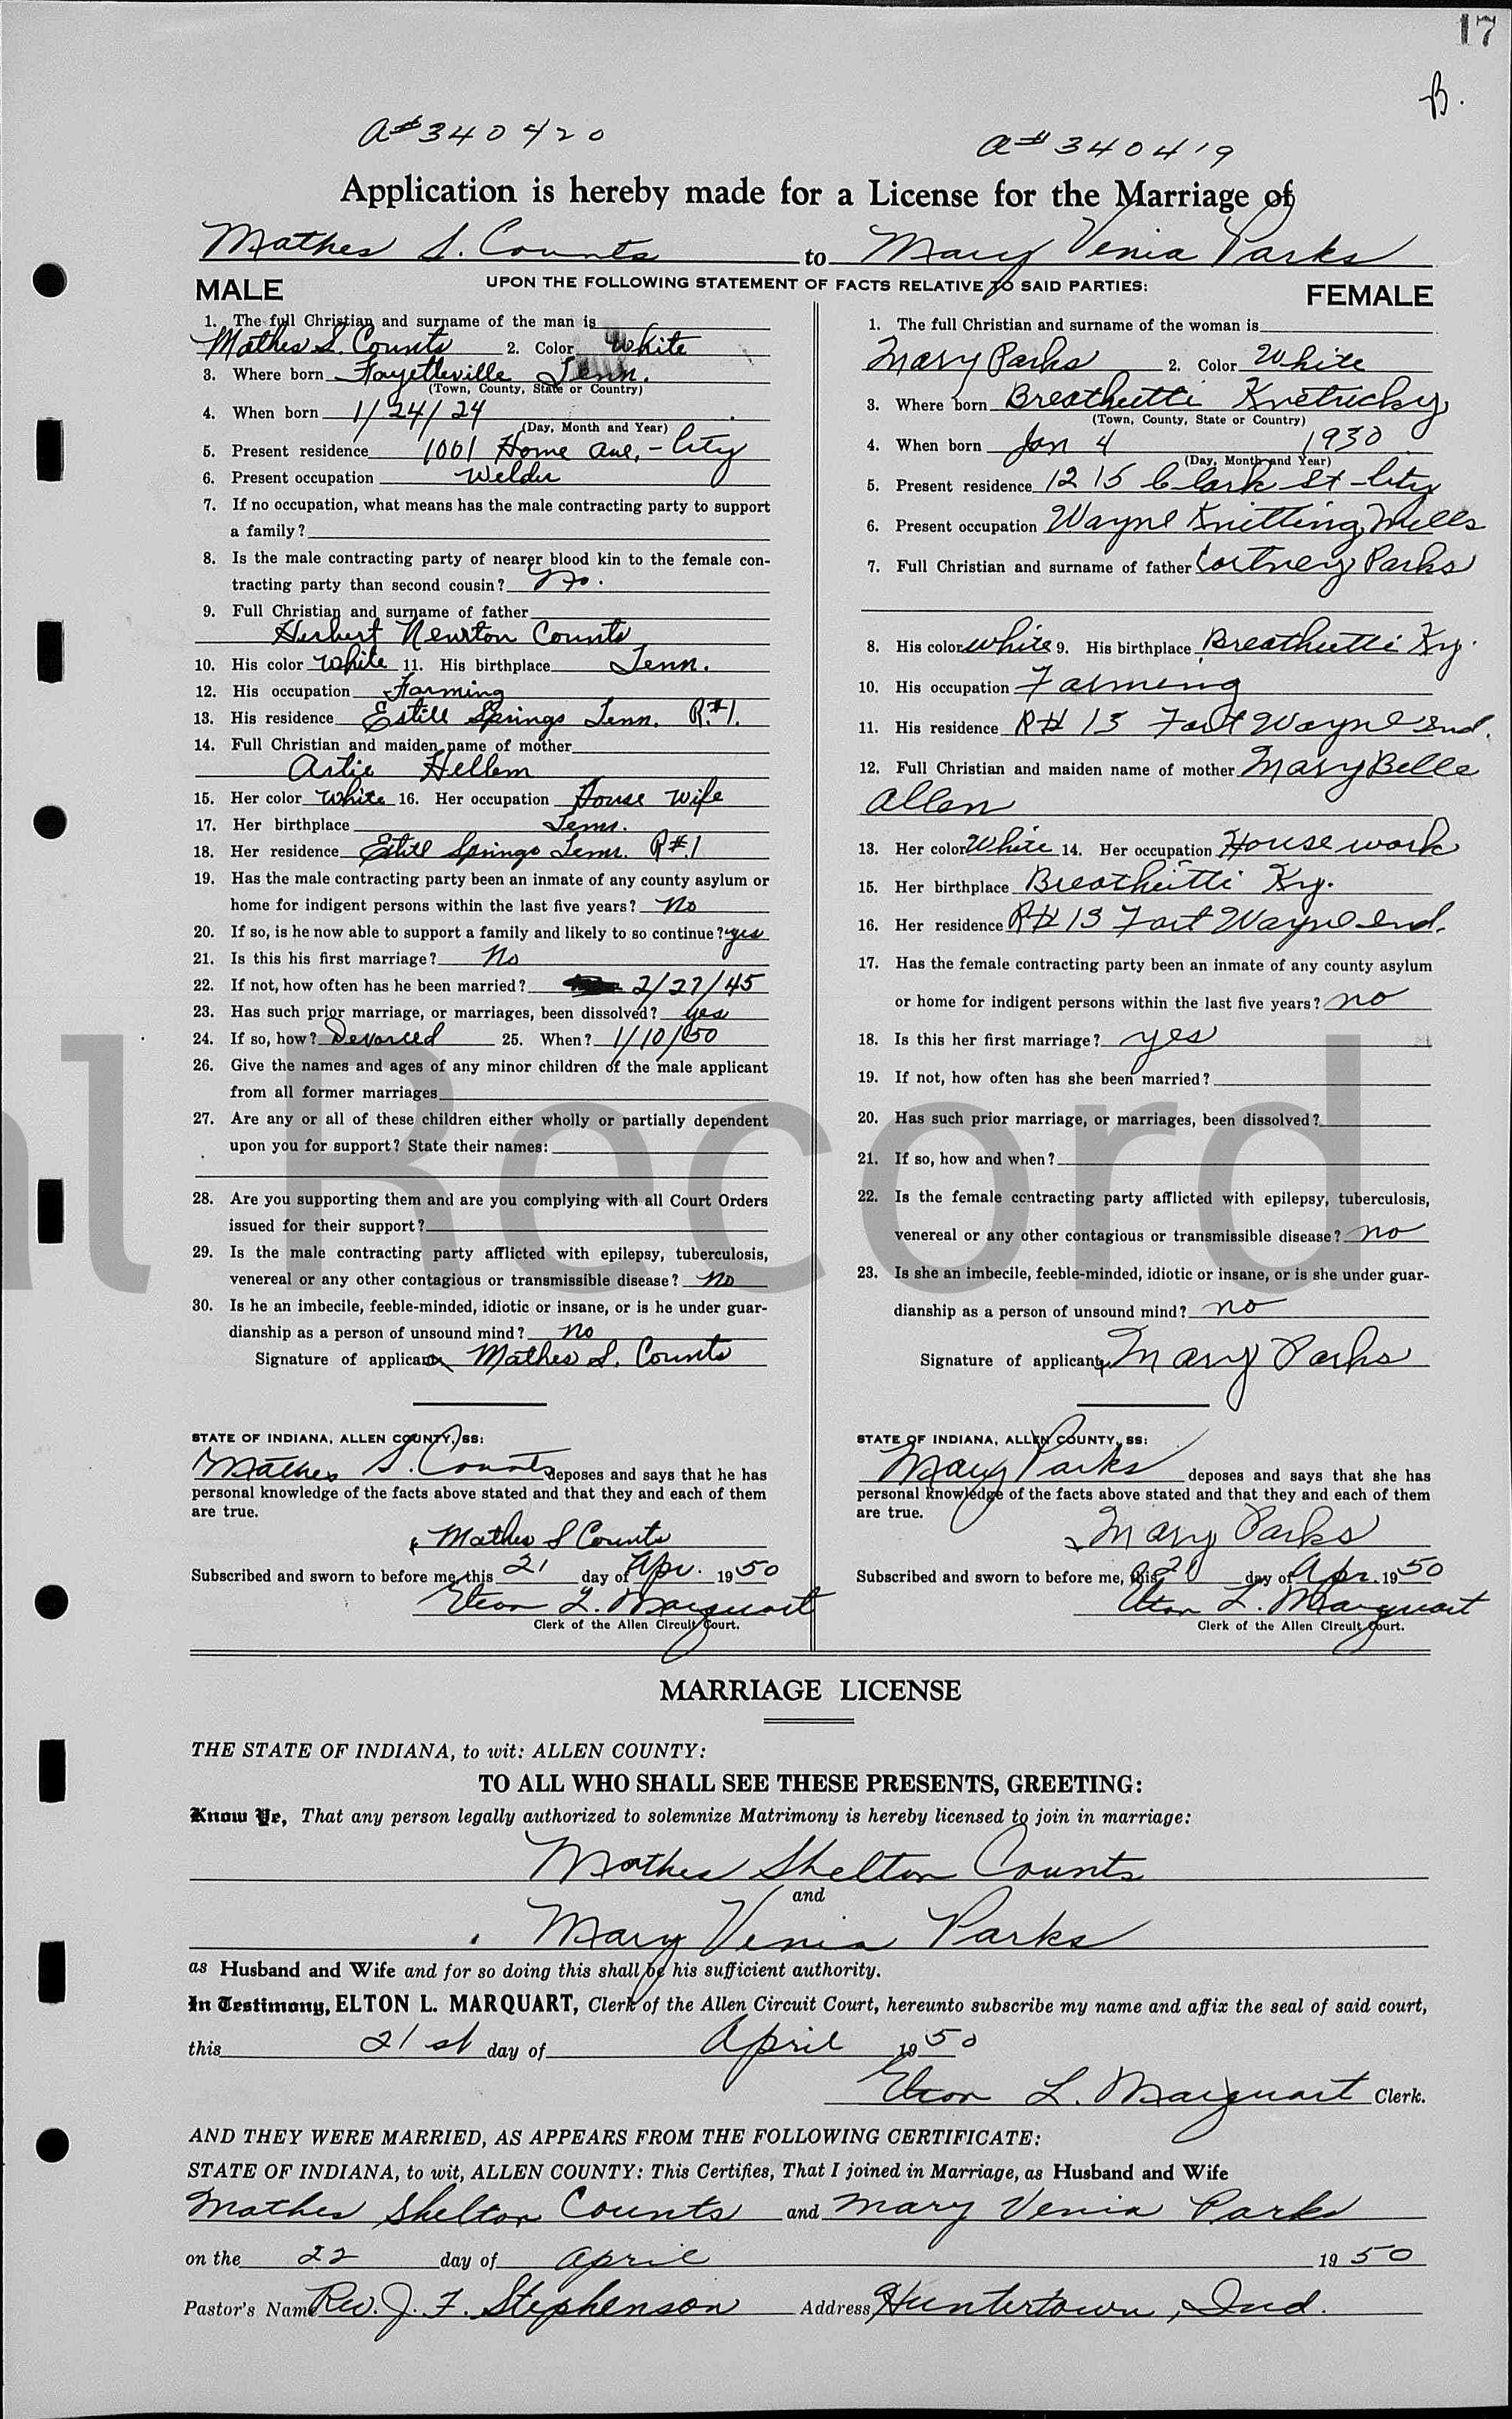 17
B.
A# 340420
A# 340419
Application is hereby made for a License for the Marriage of
Mathes S. Counts to Mary Venia Parks
UPON THE FOLLOWING STATEMENT OF FACTS RELATIVE TO SAID PARTIES:
MALE
1. The full Christian and surname of the man is
Mathes S. Counts 2. Color White
3. Where born Fayetteville Tenn.
(Town, County, State or Country)
4. When born 1/24/24
(Day, Month and Year)
5. Present residence 1001 Home Ave, - City
6. Present occupation Welder
7. If no occupation, what means has the male contracting party to support
a family?
8. Is the male contracting party of nearer blood kin to the female con-
tracting party than second cousin? No.
9. Full Christian and surname of father
Herbert Newton Counts
10. His color White 11. His birthplace Tenn.
12. His occupation Farming
13. His residence Estill Springs Tenn. R.#1.
14. Full Christian and maiden name of mother
Artie Hellem
15. Her color White 16. Her occupation House Wife
17. Her birthplace Tenn.
18. Her residence Estill Springs Tenn. R#.1
19. Has the male contracting party been an inmate of any county asylum or
home for indigent persons within the last five years? No
20. If so, is he now able to support a family and likely to so continue? yes
21. Is this his first marriage? No
22. If not, how often has he been married? 2/27/45
23. Has such prior marriage, or marriages, been dissolved? yes
24. If so, how? Devorced 25. When? 1/10/50
26. Give the names and ages of any minor children of the male applicant
from all former marriages
27. Are any or all of these children either wholly or partially dependent
upon you for support? State their names:
28. Are you supporting them and are you complying with all Court Orders
issued for their support?
29. Is the male contracting party afflicted with epilepsy, tuberculosis,
venereal or any other contagious or transmissible disease? No
30. Is he an imbecile, feeble-minded, idiotic or insane, or is he under guar-
dianship as a person of unsound mind? No
Signature of applicant Mathes S. Counts
STATE OF INDIANA, ALLEN COUNTY, SS:
Mathes S. Counts deposes and says that he has
personal knowledge of the facts above stated and that they and each of them
are true.
Mathes S Counts
Subscribed and sworn to before me, this 21 day of Apr. 1950
Elton L. Marquart
Clerk of the Allen Circuit Court.
FEMALE
1. The full Christian and surname of the woman is
Mary Parks 2. Color White
3. Where born Breathutti Knetucky
(Town, County, State or Country)
4. When born Jan 4 1930
(Day, Month and Year)
5. Present residence 1215 Clark St - City
6. Present occupation Wayne Knitting Mills
7. Full Christian and surname of father Cortney Parks
8. His color White 9. His birthplace Breathutti Ky.
10. His occupation Farming
11. His residence R# 13 Fort Wayne Ind.
12. Full Christian and maiden name of mother Mary Belle
Allen
13. Her color White 14. Her occupation House work
15. Her birthplace Breathutti Ky.
16. Her residence R# 13 Fort Wayne Ind.
17. Has the female contracting party been an inmate of any county asylum
or home for indigent persons within the last five years? no
18. Is this her first marriage? yes
19. If not, how often has she been married?
20. Has such prior marriage, or marriages, been dissolved?
21. If so, how and when?
22. Is the female contracting party afflicted with epilepsy, tuberculosis,
venereal or any other contagious or transmissible disease? no
23. Is she an imbecile, feeble-minded, idiotic or insane, or is she under guar-
dianship as a person of unsound mind? no
Signature of applicant Mary Parks
STATE OF INDIANA, ALLEN COUNTY, SS:
Mary Parks deposes and says that she has
personal knowledge of the facts above stated and that they and each of them
are true.
Mary Parks
Subscribed and sworn to before me, this day of Apr. 1950
Elton L. Marquart
Clerk of the Allen Circuit Court.
MARRIAGE LICENSE
THE STATE OF INDIANA, to wit: ALLEN COUNTY:
TO ALL WHO SHALL SEE THESE PRESENTS, GREETING:
Know Ye, That any person legally authorized to solemnize Matrimony is hereby licensed to join in marriage:
Mathes Shelton Counts
and
Mary Venia Parks
as Husband and Wife and for so doing this shall be his sufficient authority.
In Testimony, ELTON L. MARQUART, Clerk of the Allen Circuit Court, hereunto subscribe my name and affix the seal of said court,
this 21st day of April 1950
Elton L. Marquart Clerk.
AND THEY WERE MARRIED, AS APPEARS FROM THE FOLLOWING CERTIFICATE:
STATE OF INDIANA, to wit, ALLEN COUNTY: This Certifies, That I joined in Marriage, as Husband and Wife
Mathes Shelton Counts and Mary Venia Parks
on the 22 day of April 1950
Pastor's Name Rev. J. F. Stephenson Address Huntertown, Ind.
l Record